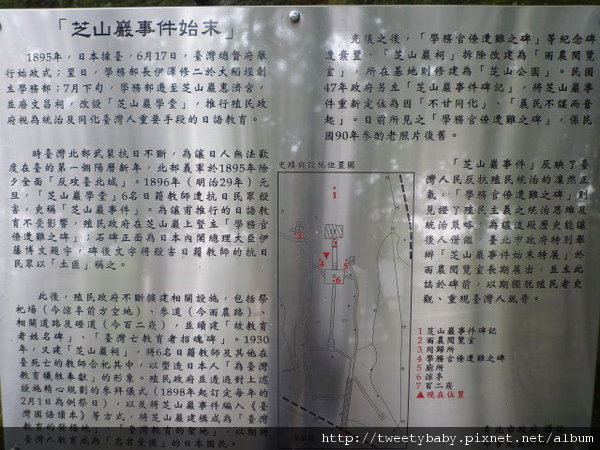 「芝山巖事件始末」
1895年，日本據臺，6月17日，臺灣總督府舉
行始政式；翌日，學務部長伊澤修二於大稻埕創
立學務部；7月下旬，學務部遷至芝山巖惠濟宮，
並廢文昌祠，改設「芝山巖學堂」，推行殖民政
府視為統治及同化臺灣人重要手段的日語教育。
時臺灣北部武裝抗日不斷，為讓日人無法歡
度在臺的第一個陽曆新年，北部義軍於1895年除
夕全面「反攻臺北城」。1896年（明治29年）元
旦，「芝山巖學堂」6名日籍教師遭抗日民眾殺
害，史稱「芝山巖事件」。為讓甫推行的日語教
育不受影響，殖民政府在芝山巖上豎立「學務官
僚遭難之碑」；石碑正面為日本內閣總理大臣伊
藤博文題字，碑後文字將殺害日籍教師的抗日
民眾以「土匪」稱之。
此後，殖民政府不斷擴建相關設施，包括祭
祀場（今涼亭前方空地）、參道（今雨農路）、
相關道路及磴道（今百二崁），並續建「故教育
者姓名碑」、「臺灣亡教育者招魂碑」。1930
年，又建「芝山巖祠」，將6名日籍教師及其他在
臺死亡的教師合祀其中，以塑造日本人「為臺灣
教育犧牲奉獻」的形象。殖民政府並透過對上述
設施精心規劃的參拜儀式（1898年起訂定每年的
2月1日為例祭日），以及將芝山巖事件編入《臺
灣國語讀本》等方式，將芝山巖建構成為「臺灣
教育的發祥地」、「臺灣教育的聖地」，以期將
臺灣人教育成為「忠君愛國」的日本國民。
光復之後，「學務官僚遭難之碑」等紀念碑
遭棄置，「芝山巖祠」拆除改建為「雨農閱覽
室」，所在基地則修建為「芝山公園」。民國
47年政府另立「芝山巖事件碑記」，將芝山巖事
件重新定位為因「不甘同化」、「義民不謀而奮
起」。目前所見之「學務官僚遭難之碑」，係民
國90年參酌老照片復舊。
「芝山巖事件」反映了臺
灣人民反抗殖民統治的凜然正
氣，「學務官僚遭難之碑」則
見證了殖民主義之統治思維及
統治策略，為讓這段歷史能讓
後人借鑑，臺北市政府特別舉
辦「芝山巖事件始末特展」於
雨農閱覽室長期展出，並立此
誌於碑前，以期擺脫殖民者史
觀、重現臺灣人風骨。
史蹟與設施位置圖
1
2
3
4
5
6
1 芝山巖事件碑記
2 雨農閱覽室
3 同歸所
4 學務官僚遭難之碑
5 廁所
6 涼亭
7 百二崁
▲現在位置
臺北市政府
http://tweetybaby.pixnet.net/album